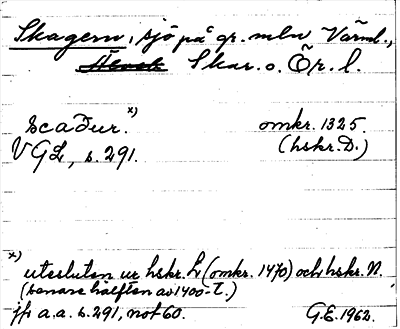 Skagern, sjö på gr. mln Värml.,
Skar. o. Ör. l.
scaður. x) omkr. 1325.
VGL, s. 291. (hskr. D.)
x) utesluten ur hskr. L (omkr. 1470) och hskr. N.
(senare hälften av 1400-t.)
jfr a.a. s. 291, not 60. G.E. 1962.